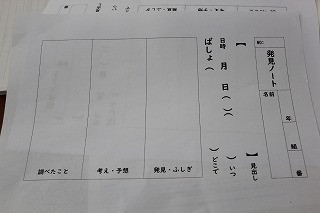 NO:
発見ノート
名前　年　組　番
【　】見出し
日時　月　日（　）（　）いつ
ばしょ（　）どこで
発見・ふしぎ
考え・予想
調べたこと